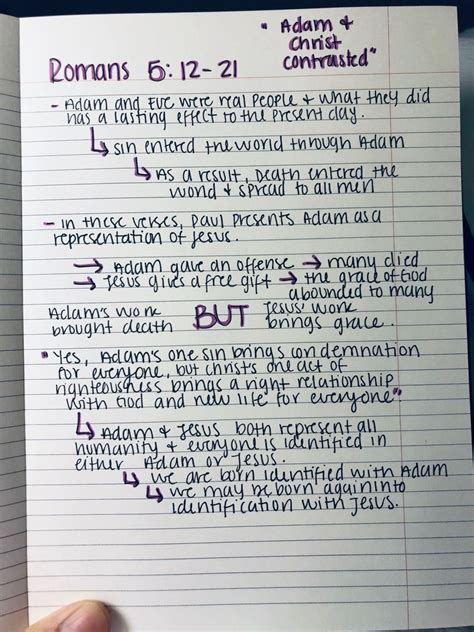 " Adam &
Christ
contrasted"
Romans 5:12-21
- Adam and Eve were real people & what they did
has a lasting effect to the present day.
↳ sin entered the world through Adam
↳ As a result, Death entered the
world & spread to all men
- in these verses, Paul presents Adam as a
representation of Jesus.
→ Adam gave an offense → many died
→ Jesus gives a free gift → the grace of God
abounded to many
Adam's work BUT Jesus' work
brought death brings grace.
"Yes, Adam's one sin brings condemnation
for everyone, but Christ's one act of
righteousness brings a right relationship
with God and new life for everyone"
↳ Adam & Jesus both represent all
humanity & everyone is identified in
either Adam or Jesus.
↳ we are born identified with Adam
↳ we may be born again into
identification with Jesus.